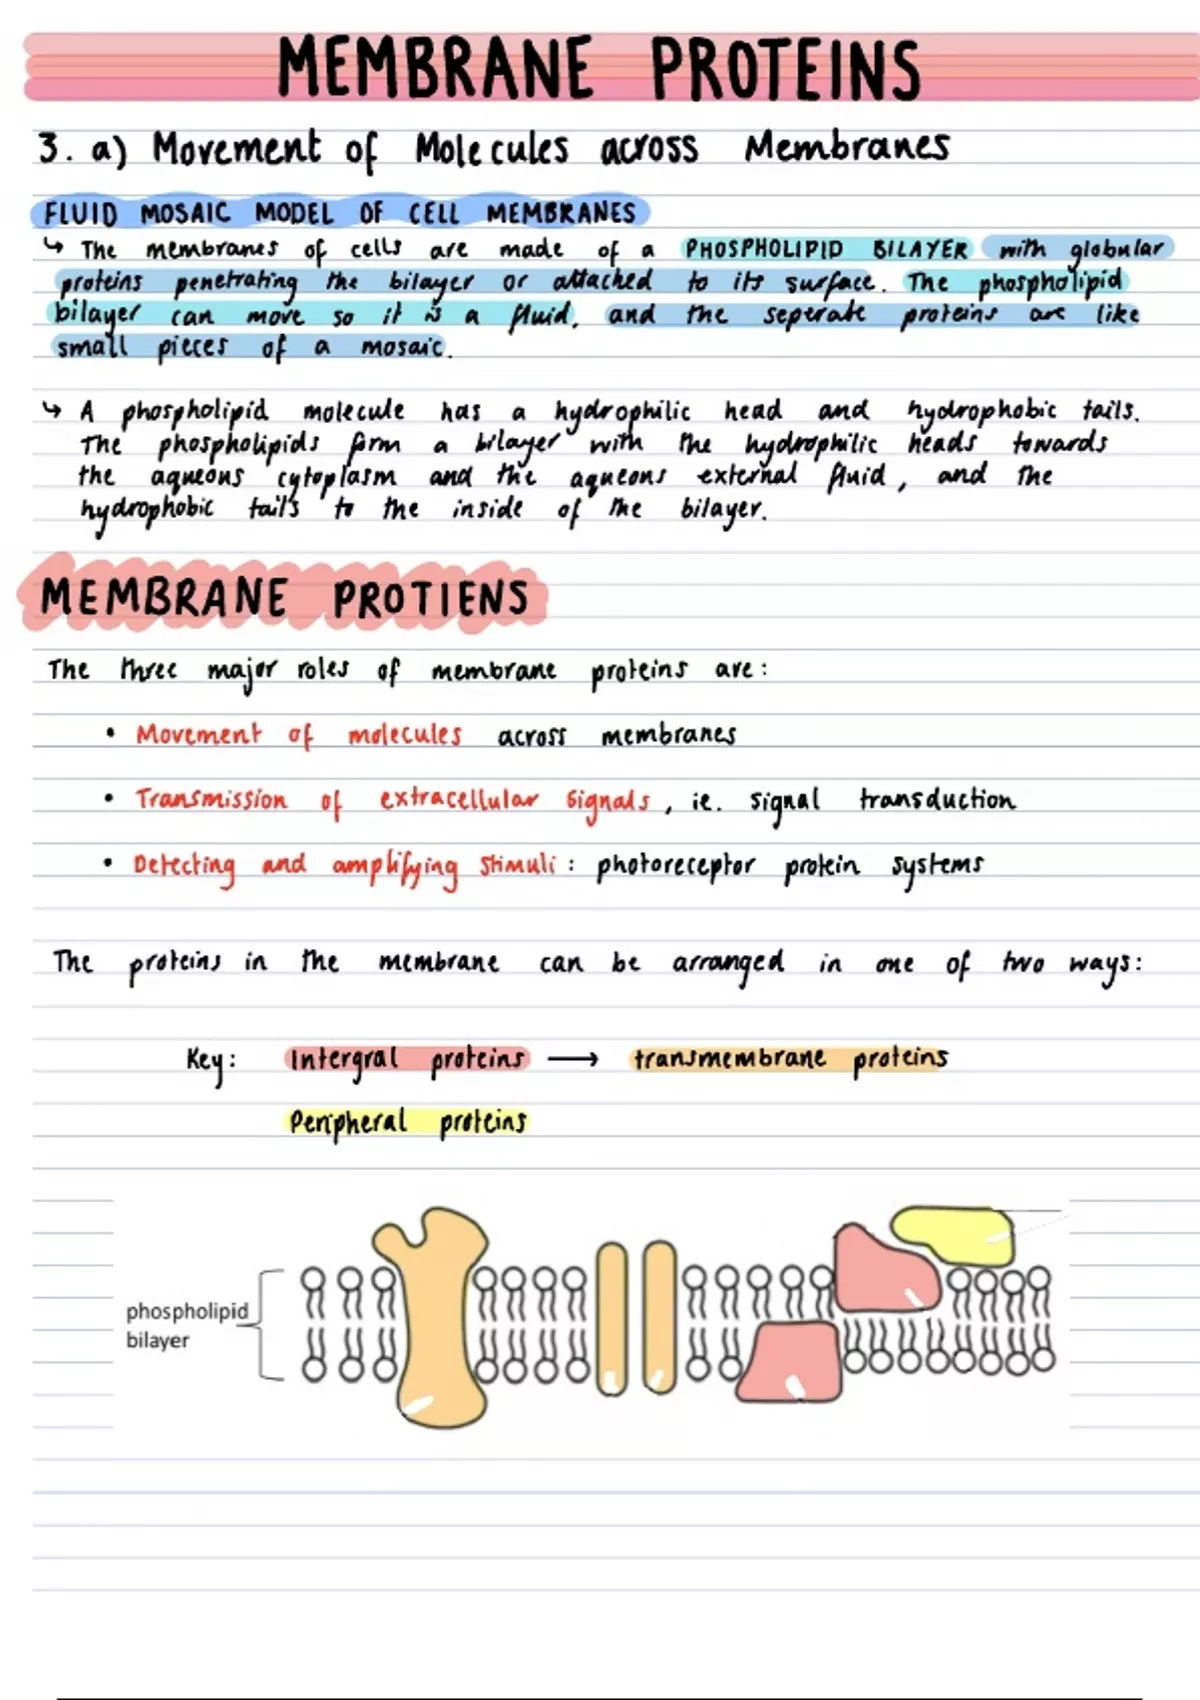 MEMBRANE PROTEINS
3. a) Movement of Molecules across Membranes
FLUID MOSAIC MODEL OF CELL MEMBRANES
↳ The membranes of cells are made of a PHOSPHOLIPID BILAYER with globular
proteins penetrating the bilayer or attached to its surface. The phospholipid
bilayer can move so it is a fluid, and the seperate proteins are like
small pieces of a mosaic.
↳ A phospholipid molecule has a hydrophilic head and hydrophobic tails.
The phospholipids form a bilayer with the hydrophilic heads towards
the aqueous cytoplasm and the aqueous external fluid, and the
hydrophobic tails to the inside of the bilayer.
MEMBRANE PROTIENS
The three major roles of membrane proteins are:
• Movement of molecules across membranes
• Transmission of extracellular signals, ie. signal transduction
• Detecting and amplifying stimuli: photoreceptor protein systems
The proteins in the membrane can be arranged in one of two ways:
Key: Intergral proteins → transmembrane proteins
Peripheral proteins
phospholipid
bilayer